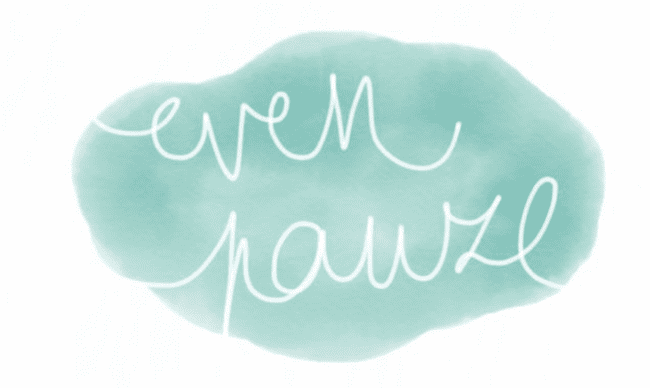 even
pauze